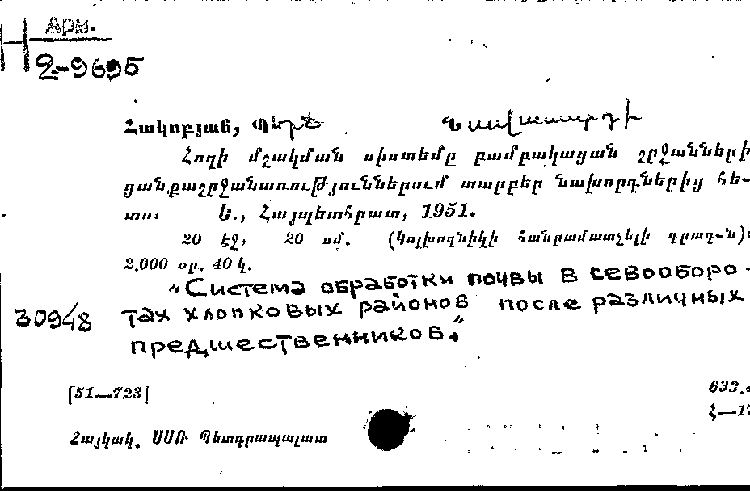 Арм.
2-9695
Հակոբյան, Պերճ Նավասարդի
Հողի մշակման սիստեմը բամբակացան շրջանների
ցանքաշրջանառություններում տարբեր նախորդներից հե-
տո: Ե., Հայպետհրատ, 1951.
20 էջ, 20 սմ. (Կոլխոզնիկի հանրամատչելի գրադ-ն):
2.000 օր. 40 կ.
„Система обработки почвы в севооборо-
30948 тах хлопковых районов после различных
предшественников."
[51—723] 633.
Հայկակ. ՍՍՌ Պետգրապալատ Հ—1